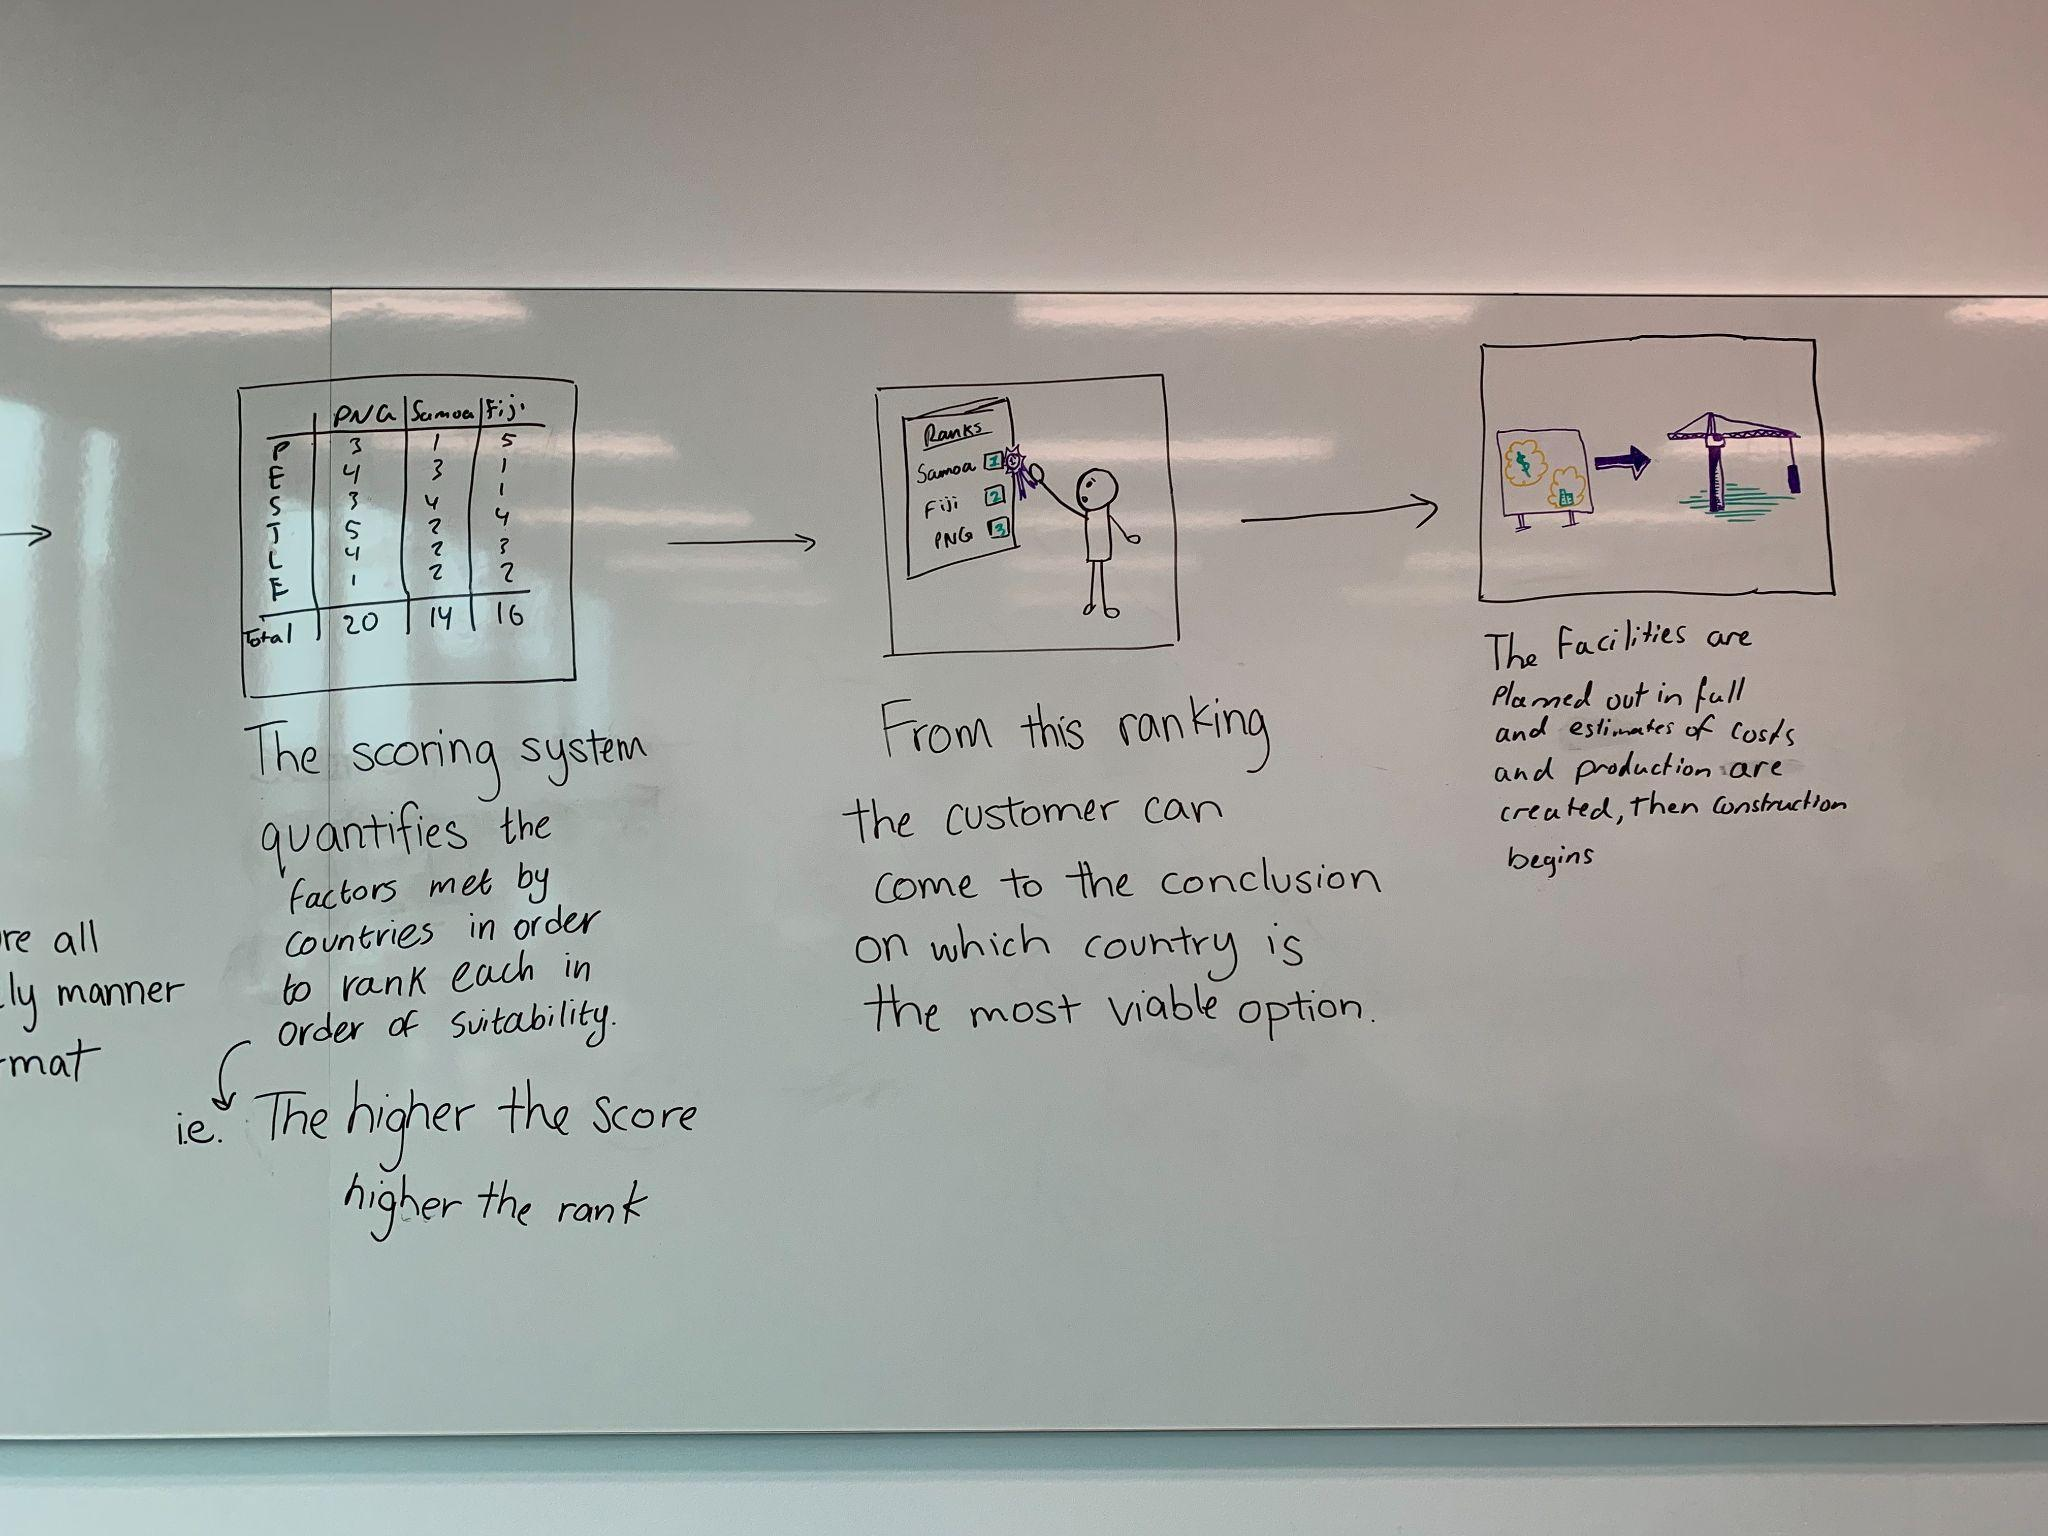 PNG Samoa Fiji
P 3 1 5
E 4 3 1
S 3 4 1
T 5 2 4
L 4 2 3
E 1 2 2
Total 20 14 16
The scoring system
quantifies the
factors met by
countries in order
to rank each in
order of suitability.
i.e. The higher the score
higher the rank
Ranks
Samoa 1
Fiji 2
PNG 3
From this ranking
the customer can
come to the conclusion
on which country is
the most viable option.
$
The Facilities are
Planned out in full
and estimates of costs
and production are
created, then construction
begins
all
manner